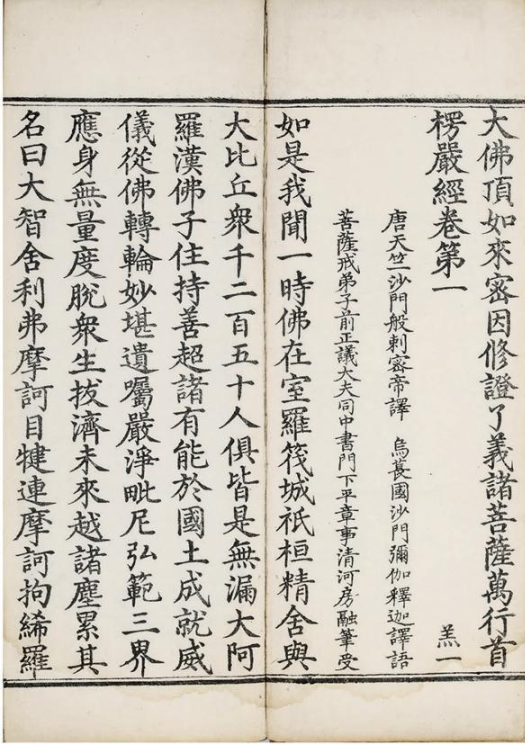 大佛頂如來密因修證了義諸菩薩萬行首
楞嚴經卷第一 羔一
唐天竺沙門般剌密帝譯 烏萇國沙門彌伽釋迦譯語
菩薩戒弟子前正議大夫同中書門下平章事清河房融筆受
如是我聞一時佛在室羅筏城祇桓精舍與
大比丘衆千二百五十人俱皆是無漏大阿
羅漢佛子住持善超諸有能於國土成就威
儀從佛轉輪妙堪遺囑嚴淨毗尼弘範三界
應身無量度脫衆生拔濟未來越諸塵累其
名曰大智舍利弗摩訶目犍連摩訶拘絺羅